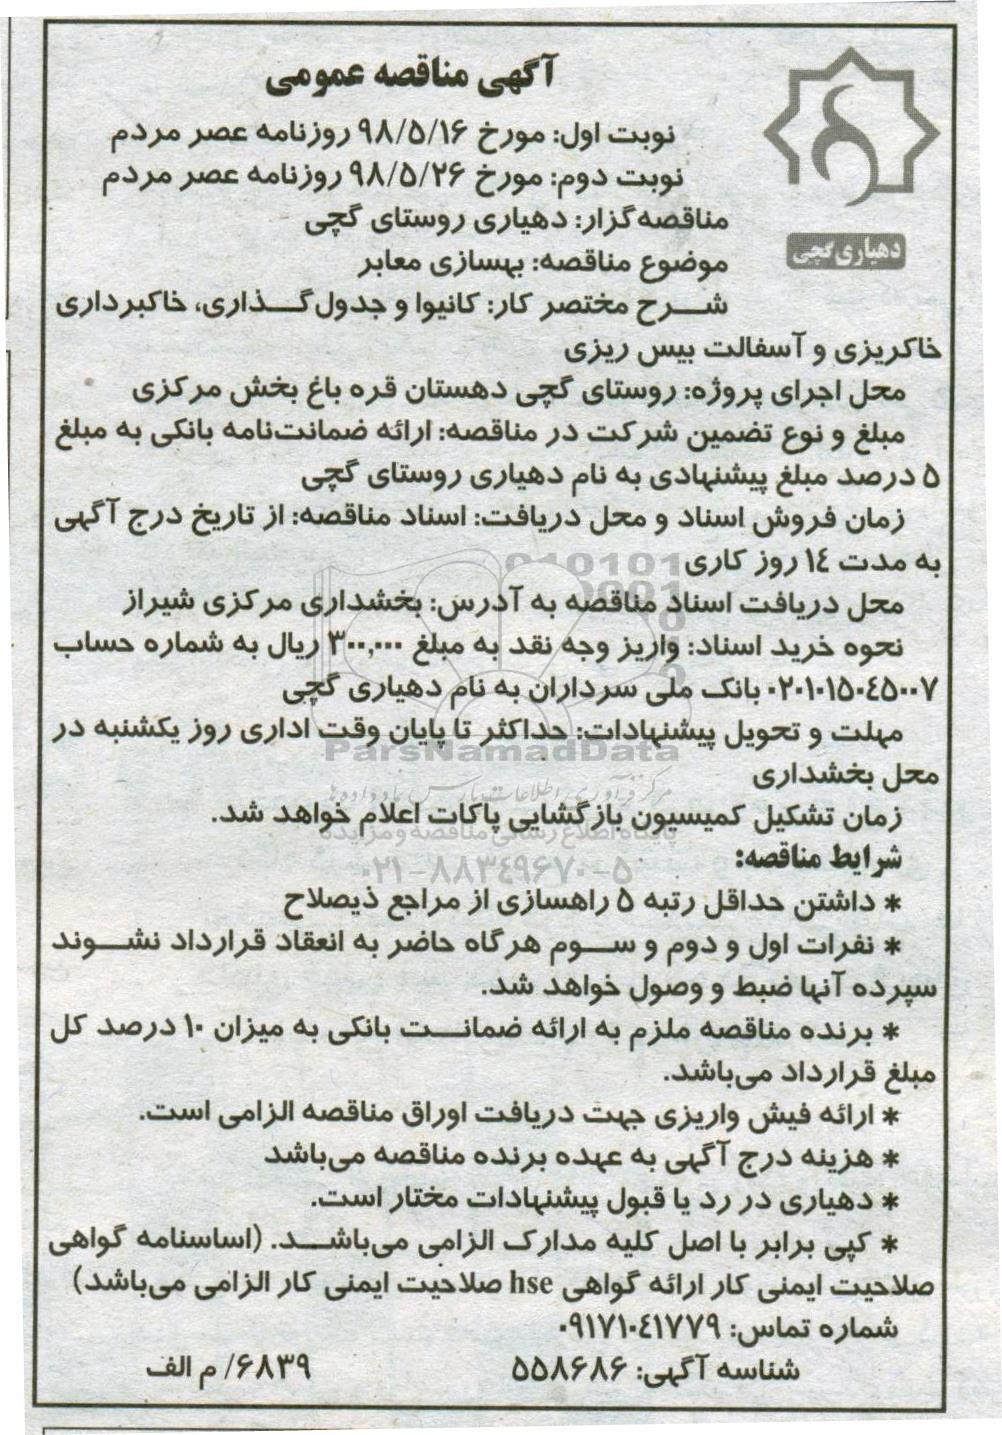 آگهی مناقصه عمومی
نوبت اول: مورخ ۹۸/۵/۱۶ روزنامه عصر مردم
نوبت دوم: مورخ ۹۸/۵/۲۶ روزنامه عصر مردم
مناقصه‌گزار: دهیاری روستای گچی
دهیاری گچی
موضوع مناقصه: بهسازی معابر
شرح مختصر کار: کانیوا و جدول‌گذاری، خاکبرداری
خاکریزی و آسفالت بیس ریزی
محل اجرای پروژه: روستای گچی دهستان قره باغ بخش مرکزی
مبلغ و نوع تضمین شرکت در مناقصه: ارائه ضمانت‌نامه بانکی به مبلغ
۵ درصد مبلغ پیشنهادی به نام دهیاری روستای گچی
زمان فروش اسناد و محل دریافت: اسناد مناقصه: از تاریخ درج آگهی
به مدت ۱۴ روز کاری
محل دریافت اسناد مناقصه به آدرس: بخشداری مرکزی شیراز
نحوه خرید اسناد: واریز وجه نقد به مبلغ ۳۰۰,۰۰۰ ریال به شماره حساب
۰۲۰۱۰۱۵۰۴۵۰۰۷ بانک ملی سرداران به نام دهیاری گچی
مهلت و تحویل پیشنهادات: حداکثر تا پایان وقت اداری روز یکشنبه در
ParsNamadData
محل بخشداری
مرکز فرآوری اطلاعات پارس نماد داده ها
زمان تشکیل کمیسیون بازگشایی پاکات اعلام خواهد شد.
پایگاه اطلاع رسانی مناقصه و مزایده
شرایط مناقصه:
۰۲۱-۸۸۳۴۹۶۷۰-۵
* داشتن حداقل رتبه ۵ راهسازی از مراجع ذیصلاح
* نفرات اول و دوم و سوم هرگاه حاضر به انعقاد قرارداد نشوند
سپرده آنها ضبط و وصول خواهد شد.
* برنده مناقصه ملزم به ارائه ضمانت بانکی به میزان ۱۰ درصد کل
مبلغ قرارداد می‌باشد.
* ارائه فیش واریزی جهت دریافت اوراق مناقصه الزامی است.
* هزینه درج آگهی به عهده برنده مناقصه می‌باشد
* دهیاری در رد یا قبول پیشنهادات مختار است.
* کپی برابر با اصل کلیه مدارک الزامی می‌باشد. (اساسنامه گواهی
صلاحیت ایمنی کار ارائه گواهی hse صلاحیت ایمنی کار الزامی می‌باشد)
شماره تماس: ۰۹۱۷۱۰۴۱۷۷۹
شناسه آگهی: ۵۵۸۶۸۶
۶۸۳۹/ م الف